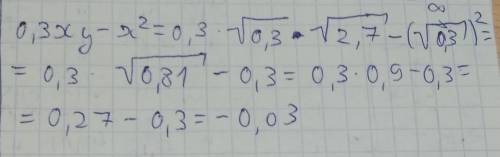 0,3xy - x² = 0,3 · √0,3 · √2,7 - (√0,3)² =
= 0,3 · √0,81 - 0,3 = 0,3 · 0,9 - 0,3 =
= 0,27 - 0,3 = - 0,03